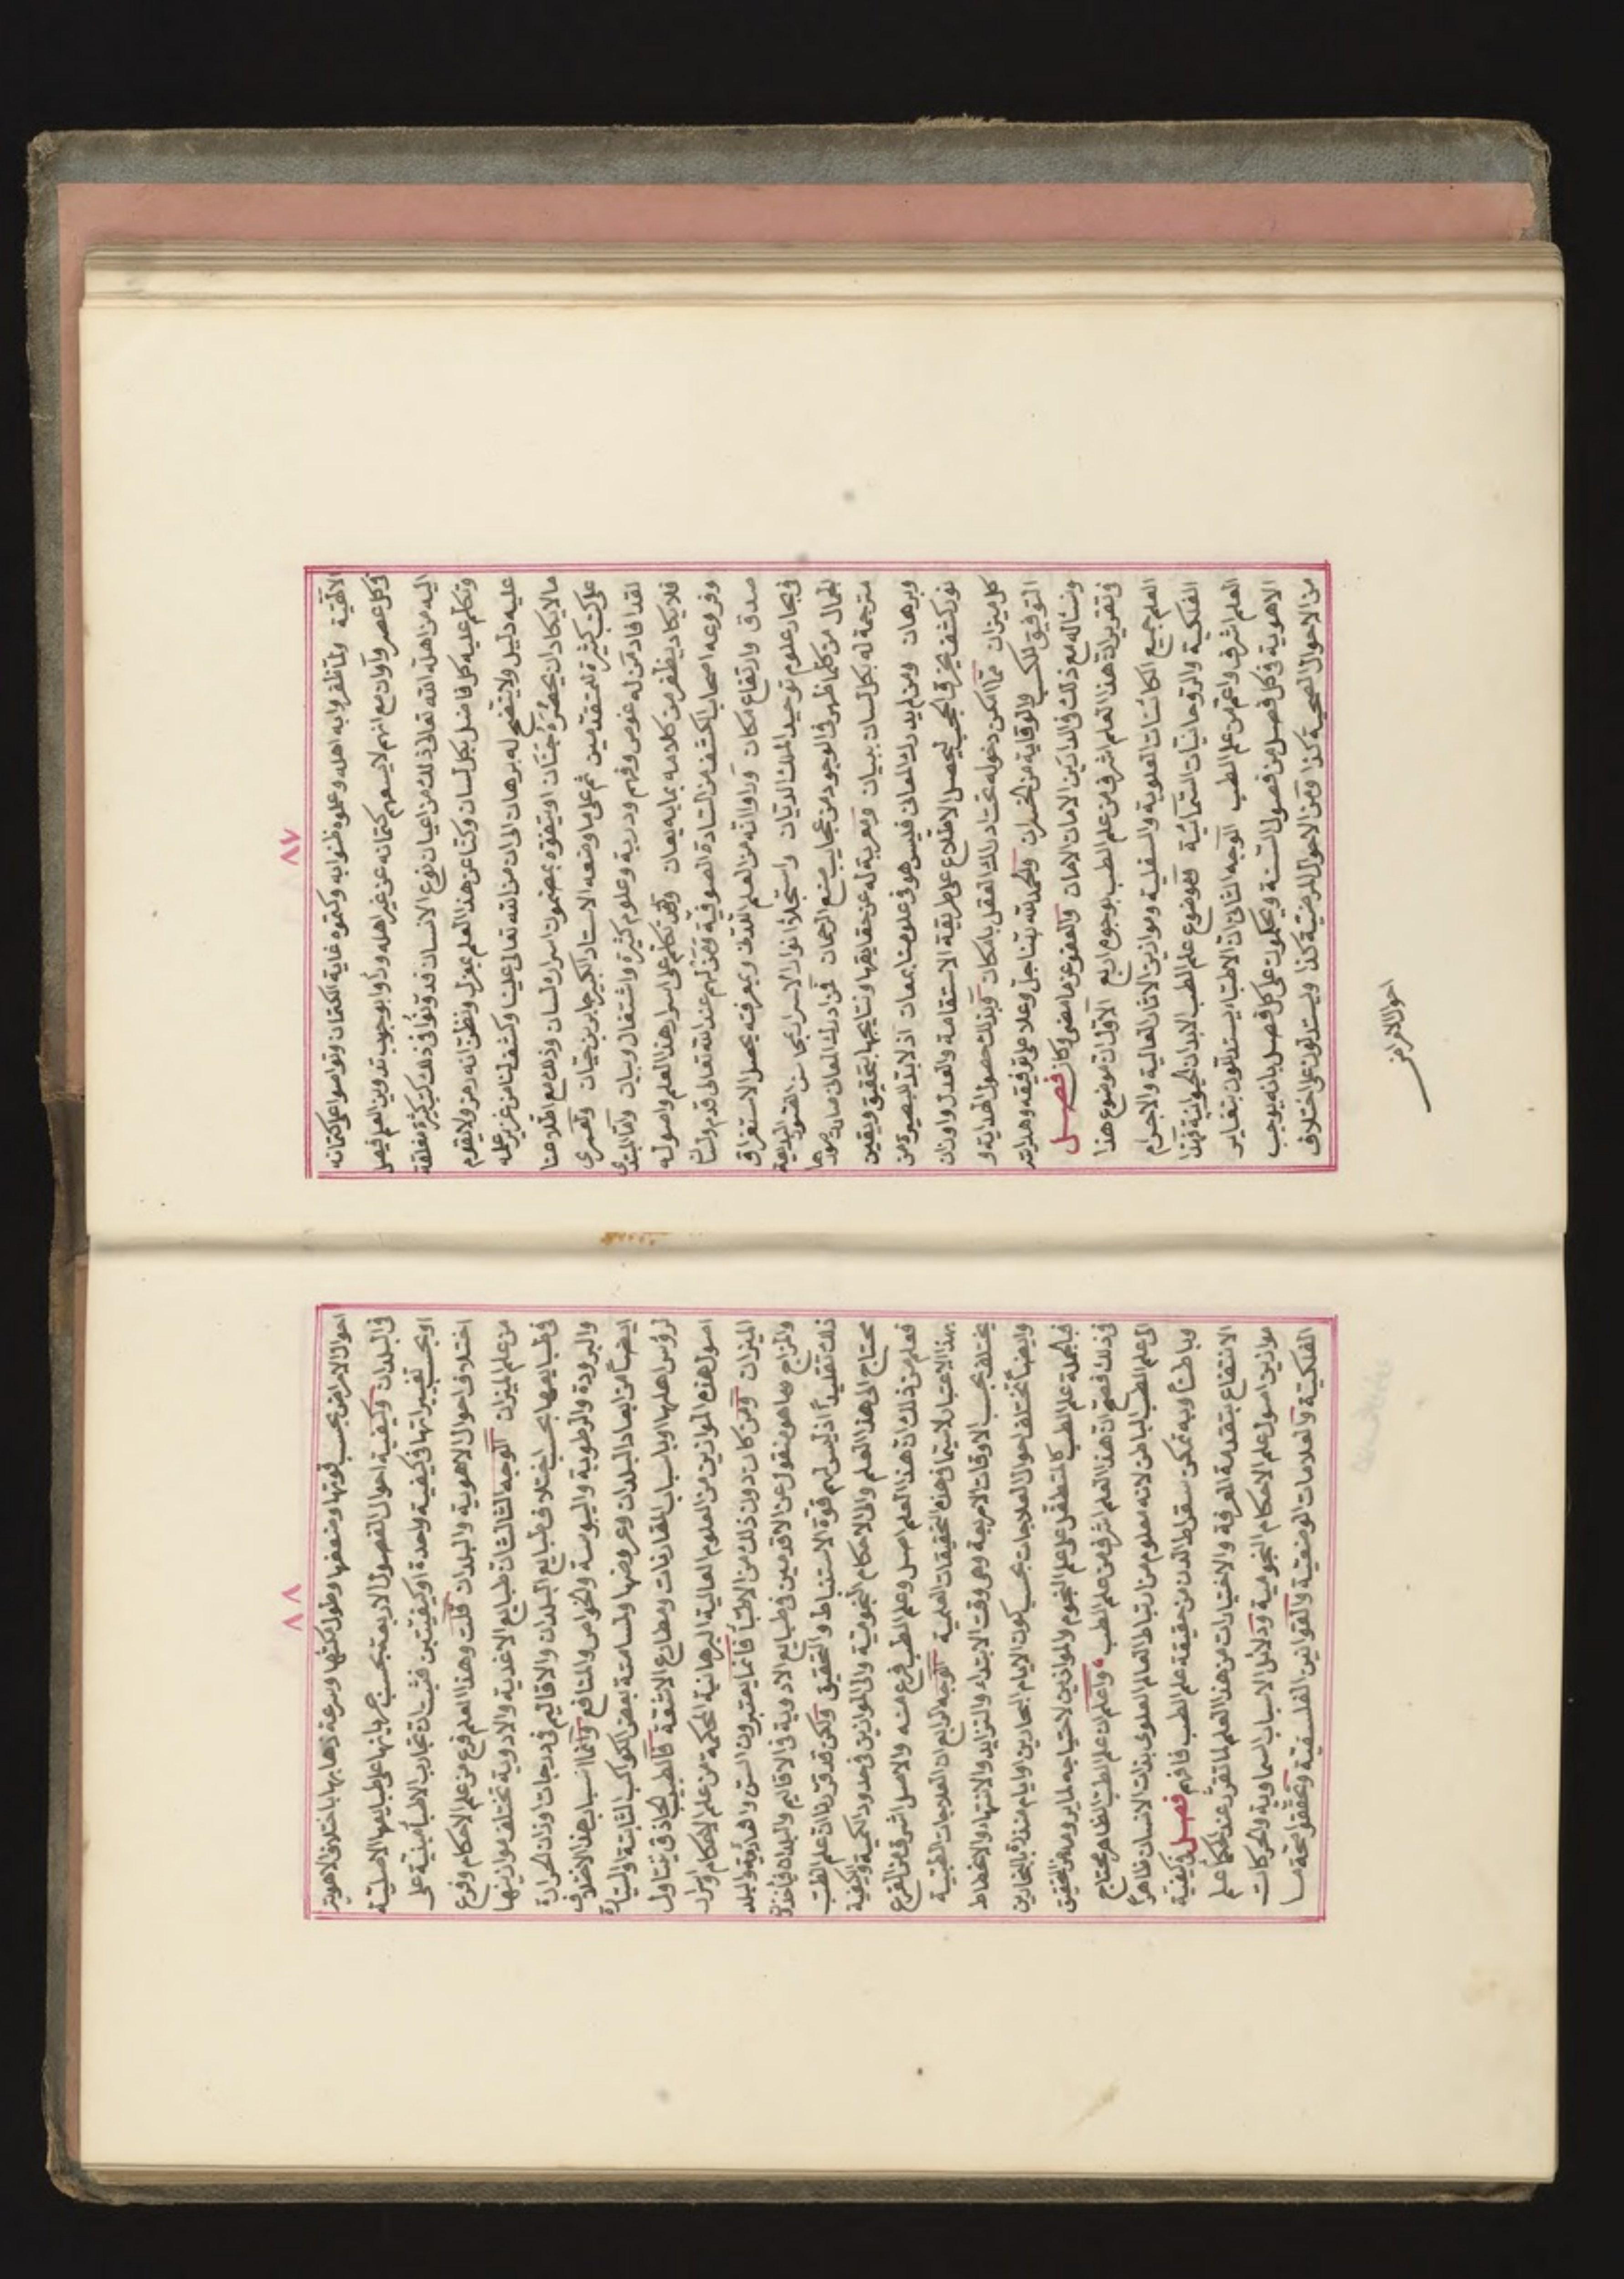 ٨٧
الالهية ولما ظفروا به اهله وعلوه ظنوا به وكتموه غاية الكتمان وتواصوا على كتمانه
فى كل عصر وآوان مع انهم لا يسعهم كتمانه عن غير اهله ورأوا بوجوب تدوين العلم فيصل
اليه من اهله الله تعالى ذلك من اعيان نوع الانسان فدونوا فى ذلك كتب كثيرة مغلقة
وتكلم عليه كل فاضل بكل لسان وكنا عن هذا العلم بمعزل ونظن انه رمز ولا يقوم
عليه دليل ولا يتضح له برهان الى ان من الله تعالى علينا وكشف لنا من غزير علمه
ما لا يكاد ان يحصره جنان او يتفوه بمضمون اسراره لسان وذلك مع اطلاعنا
على كتب كثيرة للمتقدمين ثم على ما وضعه الاستاد الكبير جابر بن حيان ولعمرى
لقد افاد من له غوص وفهم ودربة وعلوم كثيرة واشتغال وبيان واما المبتدى
فلا يكاد يظفر من كلامه بما به يعان وقد تكلم على اسرار هذا العلم واصوله
وفروعه اصحاب الكشف من السادة الصوفية ومن لهم عند الله تعالى قدم ولسان
صدق وارتفاع مكان ورأوا انه من العلم اللدنى وبمعرفته يحصل الاستغراق
فى بحار علوم توحيد الملك الديان واستجلاء انوار الاسرار بمحاسن الفنون البديعة
الجمال من كلما ظهر فى الوجود من عجايب صنع الرحمان فمن ادرك المعانى صارت صورها
مترجمة له بكل لسان ببيان ومعربة له عن حقايقها ونتايجها بتحقيق ويقين
وبرهان ومن لم يدرك المعانى فليس هو فى علومنا بمعان اذ لا بد للبصيرة من
نور كشف يخرق الحجب ليحصل الاطلاع على طريقة الاستقامة والعدل واوزان
كل ميزان مما امكن دخوله تحت ادراك العقل بامكان وبذلك حصول الهداية و
التوفيق للكسب والوقاية من الخسران والحمد لله ربنا جل وعلا على توفيقه وهدايته
ونسأله مع ذلك فى الدارين الامان الامان والعفو عن ما مضى وكان فصل
فى تقرير ان هذا العلم اشرف من علم الطب بوجوه اربع الاول ان موضوع هذا
العلم جميع الكائنات العلوية والسفلية وموازين الاثار العالية والاجرام
الفلكية والروحانيات السمائية وموضوع علم الطب الابدان الحيوانية فهذا
العلم اشرف واعم من علم الطب الوجه الثانى ان الاطباء يستدلون بتغاير
الاهوية فى كل فصل من فصول السنة ويحكمون على كل فصل بانه يوجب
من الاحوال الصحية كذا ومن الاحوال المرضية كذا ويستدلون على اختلاف
احوال الامراض
٨٨
احوال الامراض بحسب قوتها وضعفها وطول مكثها وسرعة ذهابها باختلاف الاهوية
فى البلدان وكيفية احوال الفصول الاربعة بحسب جريانها على طبايعها الاصلية
او بحسب تغييراتها فى كيفية واحدة او كيفيتين فثبت ان تجارب الاطباء مبنية على
اختلاف احوال الاهوية والبلدان قلت وهذا العلم فرع من علم الاحكام وفرع
من علم الميزان الوجه الثالث ان طبايع الاغذية والادوية تختلف موازينها
فى طبايعها بحسب اختلاف طبايع البلدان والاقاليم فى درجات اوزان الحرارة
والبرودة والرطوبة واليبوسة والخواص والمنافع وانما اسباب هذا الاختلاف
ايضا من ابعاد البلدان وعروضها ولمسامتة بعض الكواكب الثابتة والسيارة
لرؤس اهلها او باسباب المقارنات ومطارح الاشعة فالطبيب الحاذق يتناول
اصول هذه الموازين من العلوم العالية البرهانية المحكمة من علم الاحكام واسرار
الميزان ومن كان دون ذلك من الاطباء فانما يعتبرون السن والعادة والبلد
والمزاج مما هو منقول عن الاقدمين فى طبايع الادوية فى الاقاليم والبلدان فياخذون
ذلك تقليدا اذ ليس لهم قوة الاستنباط والتحقيق ولكن قد قررنا ان علم الطب
محتاج الى هذا العلم والى الاحكام النجومية والى الموازين فى حدود الكمية والكيفية
فعلم من ذلك ان هذا العلم اصل وعلم الطب فرع منه والاصل اشرف من الفرع
بهذا الاعتبار لا سيما فى هذه التحقيقات العلمية الوجه الرابع ان العلاجات الطبية
يختلف بحسب الاوقات الامزجة وهى وقت الابتداء والتزايد والانتهاء والانحطاط
وايضا تختلف احوال العلاجات بحسب كون الايام البحارين وايام منذرة بالبحارين
فبالجملة علم الطب كالمتطفل على علم النجوم والموازين لاحتياجه لما يرومه من التحقيق
فى ذلك فصح ان هذا العلم اشرف من علم الطب واعلم ان علم الطب الظاهر محتاج
الى علم الطب الباطن لانه معلوم من ارتباط العالم العلوى بذات الانسان ظاهرا
وباطنا وبه تمكن سقراط الدن من حقيقة علم الطب فافهم فصل وكيفية
الانتفاع بتقدمة المعرفة والاختيارات من هذا العلم لما تقرر عند الحكماء علم
موازين اصول علم الاحكام النجومية ودلائل الاسباب السماوية والحركات
الفلكية والعلامات الوضعية والقوانين الفلسفية وتحققوا صحة ما